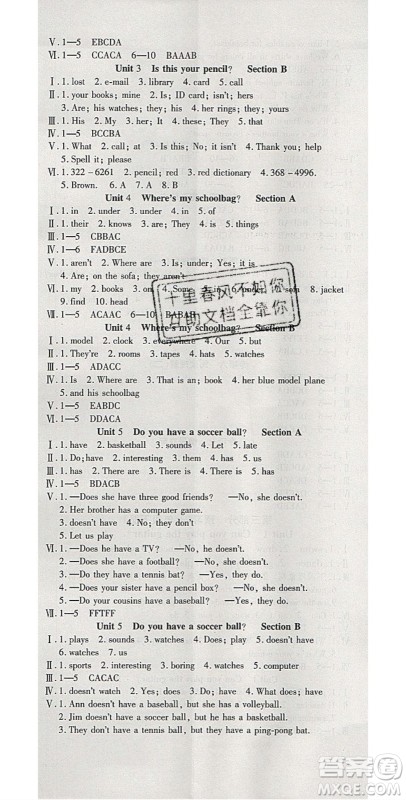 Ⅴ. 1—5 EBCDA
Ⅵ. 1—5 CCACA 6—10 BAAAB
Unit 3 Is this your pencil? Section B
Ⅰ. 1. lost 2. e-mail 3. library 4. card 5. call
Ⅱ. 1. your books; mine 2. Is; ID card; isn't; hers
3. Are; his watches; they; his 4. her rings; they; yours
Ⅲ. 1. His 2. My 3. her; It 4. these; They 5. that
Ⅳ. 1—5 BCCBA
Ⅴ. 1. What 2. call; at 3. Is this; No; it isn't 4. Thank; for
5. Spell it; please
Ⅵ. 1. 322-6261 2. pencil; red 3. red dictionary 4. 368-4996.
5. Brown. 6. A 7. A 8. A
Unit 4 Where's my schoolbag? Section A
Ⅰ. 1. in 2. under 3. under 4. in 5. of
Ⅱ. 1. their 2. knows 3. are; They 4. is 5. things
Ⅲ. 1—5 CBBAC
Ⅳ. 1—6 FADBCE
Ⅴ. 1. aren't 2. Where is 3. Is; under; Yes; it is
4. Are; on the sofa; they aren't
Ⅵ. 1. my 2. books 4. on 4. Some 5. in 8. jacket
9. find 10. head
Ⅶ. 1—5 ACAAC 6—10 BABAB
Unit 4 Where's my schoolbag? Section B
Ⅰ. 1. model 2. clock 3. everywhere 4. Our 5. but
Ⅱ. 1. They're 2. rooms 3. tapes 4. hats 5. Where
Ⅲ. 1—5 ADACC
Ⅳ. 1. Is 2. Where are 3. That is an 4. her blue model plane
5. and his schoolbag
Ⅴ. 1—5 EABDC
Ⅵ. 1—5 DACDD
Unit 5 Do you have a soccer ball? Section A
Ⅰ. 1. have 2. basketball 3. sounds 4. Let 5. late
Ⅱ. 1. Do; have 2. interesting 3. them 4. has 5. us
Ⅲ. 1. has 2. There are 3. with 4. to have 5. interesting
Ⅳ. 1—5 BDACB
Ⅴ. 1. —Does she have three good friends? —No, she doesn't.
2. Her brother has a computer game.
3. doesn't have 4. No; they don't
5. Let us play
Ⅵ. 1. —Do they have a TV? —No, they don't.
2. —Does she have a football? —No, she doesn't.
3. —Do they have a tennis bat? —Yes, they do.
4. —Does your sister have a pencil box? —No, she doesn't.
5. —Do your cousins have a baseball? —Yes, they do.
Ⅶ. 1—5 FFTFF
Unit 5 Do you have a soccer ball? Section B
Ⅰ. 1. plays 2. sounds 3. watches 4. Does; play 5. doesn't
6. watches 7. us
Ⅱ. 1. sports 2. interesting 3. boring 4. watches 5. computer
Ⅲ. 1—5 CACAC
Ⅳ. 1. doesn't watch 2. Yes; does 3. Does; have 4. doesn't have
Ⅴ. 1. Ann doesn't have a baseball, but she has a volleyball.
2. Jim doesn't have a soccer ball, but he has a basketball.
3. They don't have a tennis ball, but they have a ping-pong bat.
十里春风不如你
互助文档全靠你
作业帮